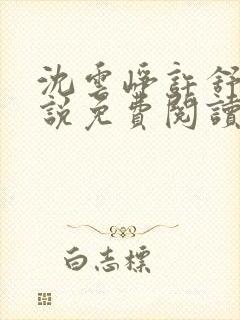 沈雲崢許舒
說免費閱讀
白志標